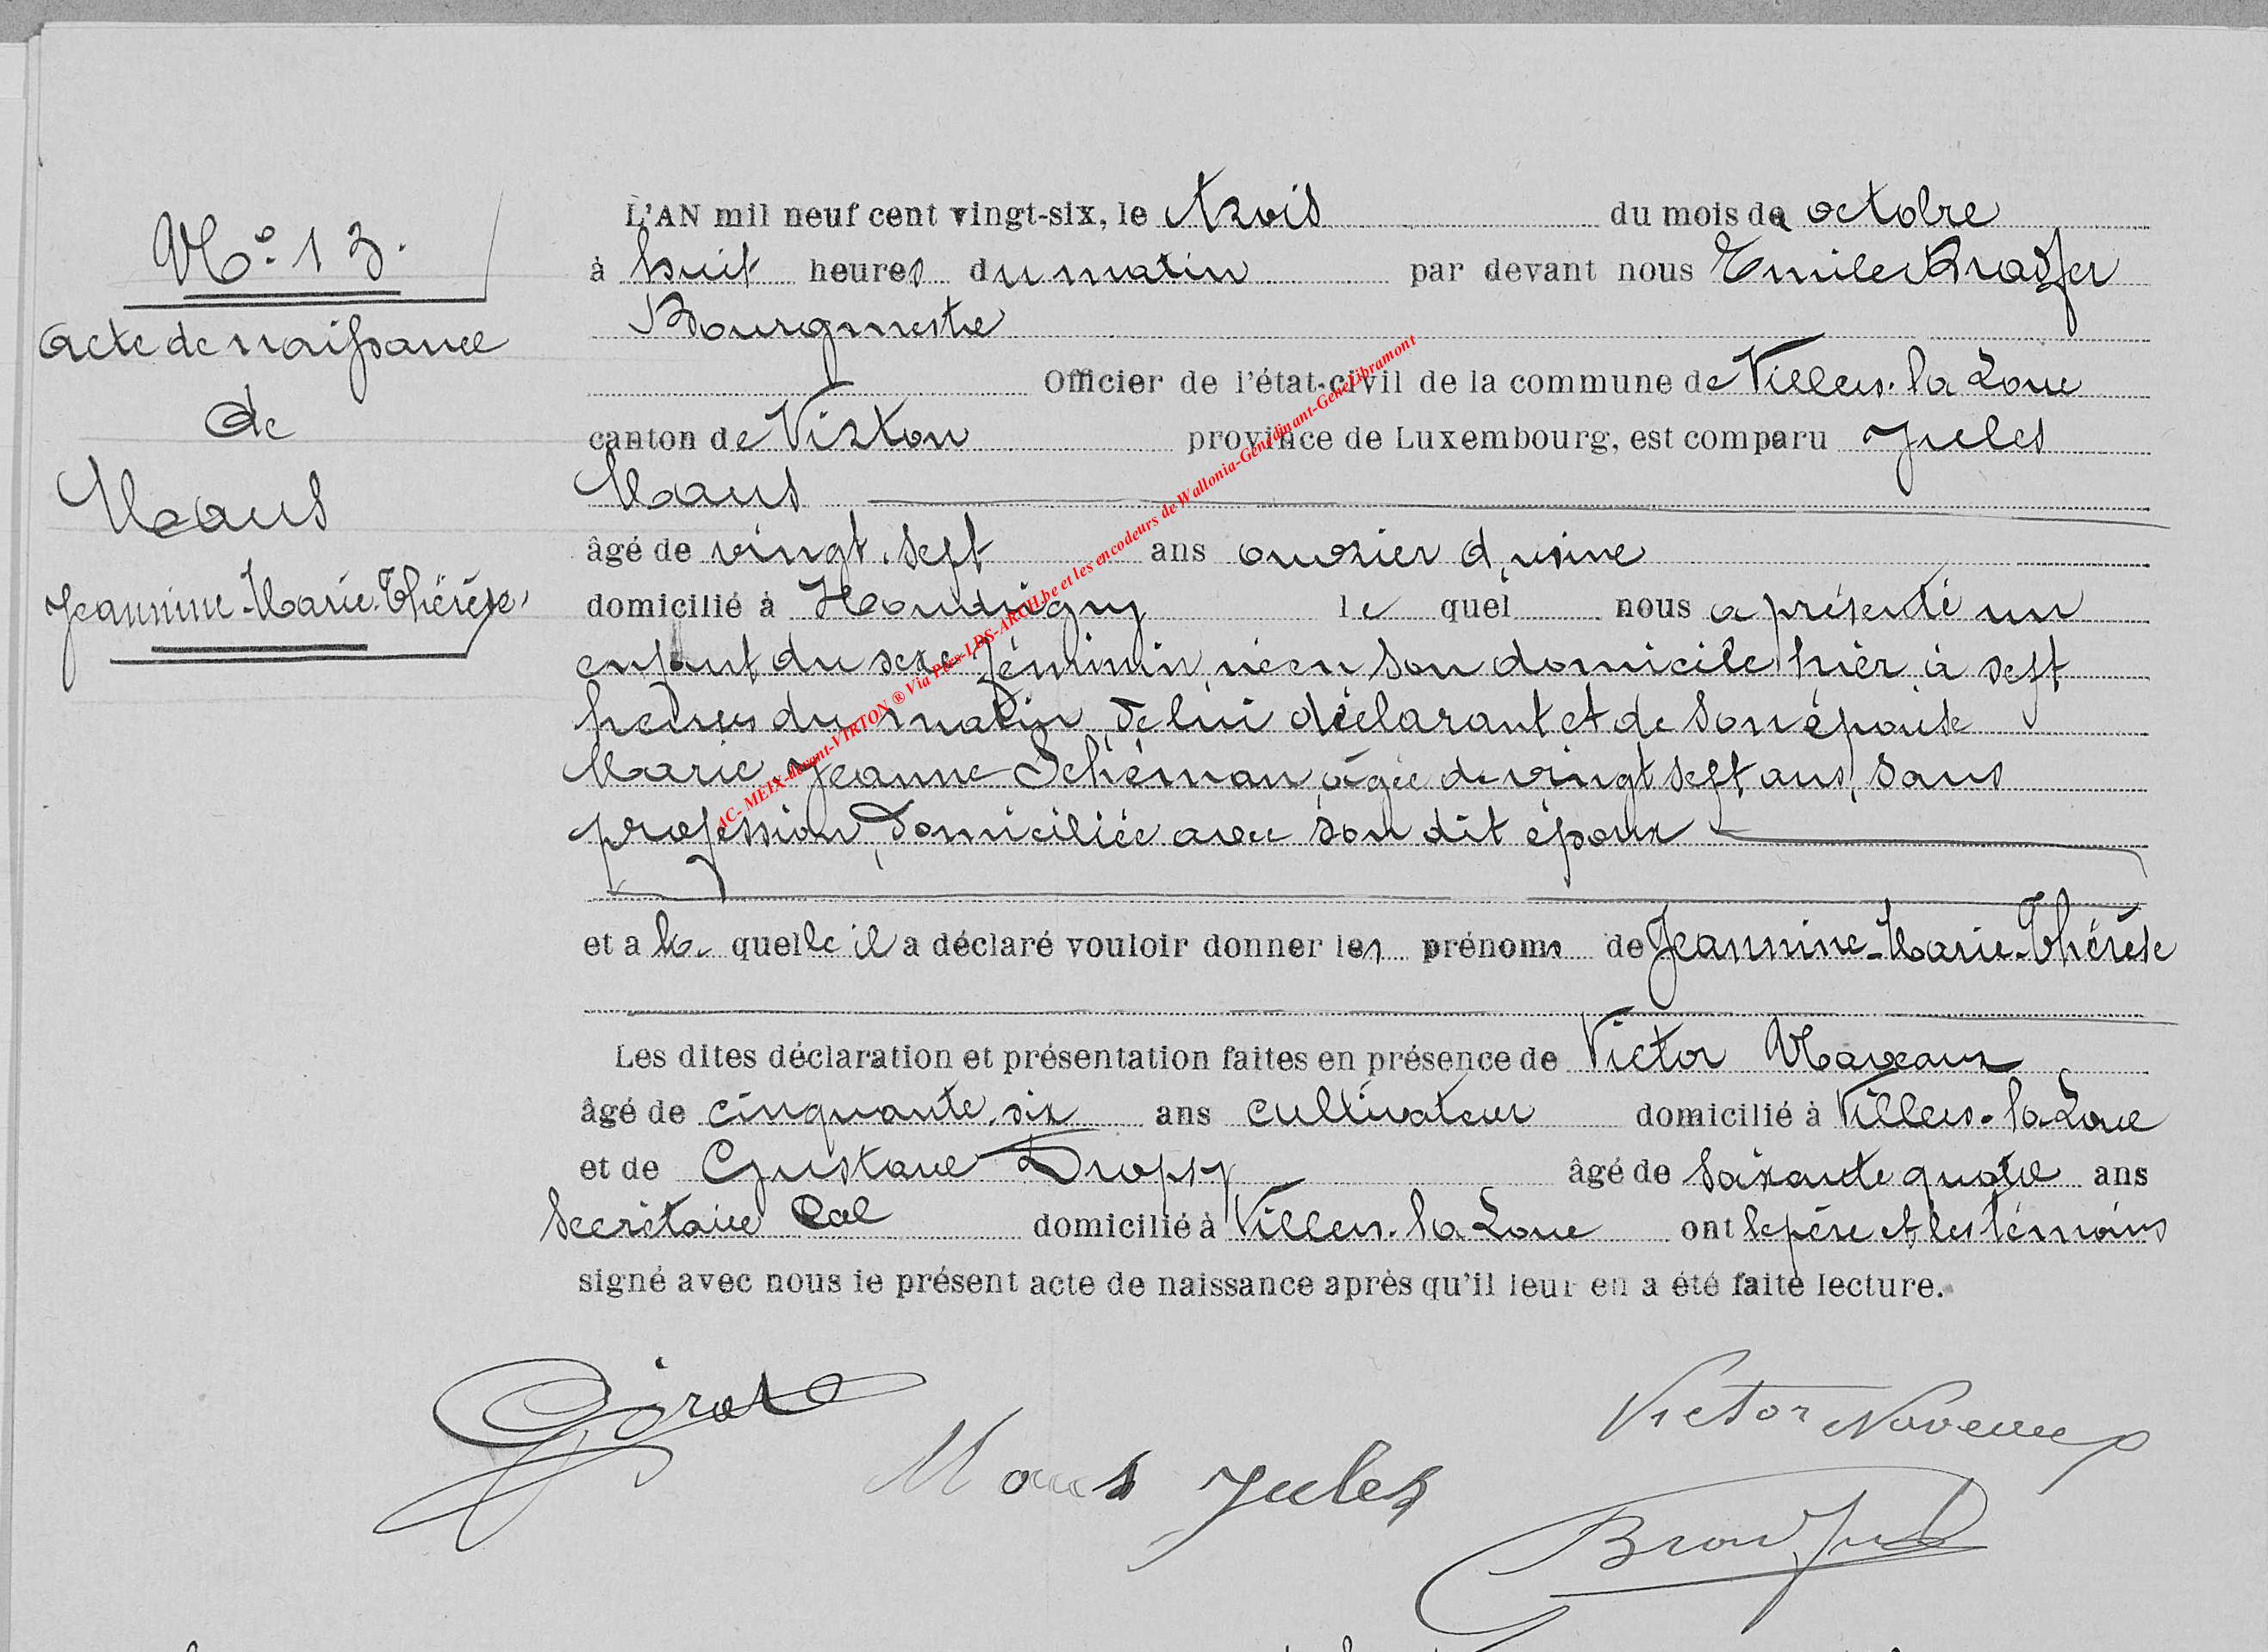 N° 13.
Acte de naissance
de
Maus
Jeannine-Marie-Thérèse,
L'AN mil neuf cent vingt-six, le trois du mois de octobre
à huit heures du matin par devant nous Emile Bradfer
Bourgmestre
Officier de l'état-civil de la commune de Villers-la-Loue
canton de Virton province de Luxembourg, est comparu Jules
Maus
âgé de vingt-sept ans ouvrier d'usine
domicilié à Houdrigny le quel nous a présenté un
enfant du sexe féminin, né en son domicile hier à sept
heures du matin, de lui déclarant et de son épouse
Marie Jeanne Schéman, âgée de vingt sept ans, sans
profession, domiciliée avec son dit époux
et a la quelle il a déclaré vouloir donner les prénoms de Jeannine-Marie-Thérèse
Les dites déclaration et présentation faites en présence de Victor Naveaux
âgé de cinquante-six ans cultivateur domicilié à Villers-la-Loue
et de Gustave Dropsy âgé de soixante quatre ans
secrétaire Cal domicilié à Villers-la-Loue ont le père et les témoins
signé avec nous le présent acte de naissance après qu'il leur en a été faite lecture.
Victor Naveaux
Maus Jules
Bradfer
AC- MEIX-devant-VIRTON ® Via Pres-LDS-ARCH.be et les encodeurs de Wallonia-Genedinant-GeneLibramont